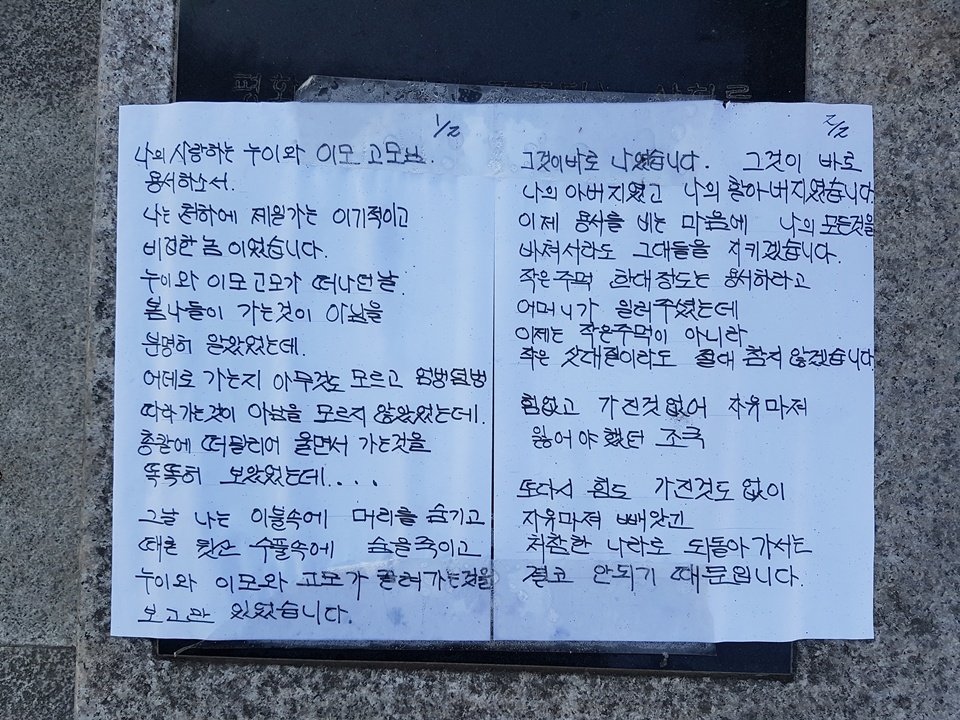 1/2
나의 사랑하는 누이와 이모 고모님.
용서하소서.
나는 천하에 제일가는 이기적이고
비겁한 놈 이었습니다.
누이와 이모 고모가 떠나던 날.
봄나들이 가는것이 아님을
분명히 알았었는데.
어데로 가는지 아무것도 모르고 덤벙덤벙
따라가는것이 아님을 모르지 않았었는데.
총칼에 떠밀리어 울면서 가는것을
똑똑히 보았었는데....
그날 나는 이불속에 머리를 숨기고
때론 뒷산 수풀속에 숨을죽이고
누이와 이모와 고모가 끌려가는것을
보고만 있었습니다.
2/2
그것이바로 나였습니다. 그것이 바로
나의 아버지였고 나의 할아버지였습니다.
이제 용서를 비는 마음에 나의 모든것을
바쳐서라도 그대들을 지키겠습니다.
작은주먹 한대정도는 용서하라고
어머니가 일러주셨는데
이제는 작은주먹이 아니라
작은 삿대질이라도 절대 참지 않겠습니다.
힘없고 가진것없어 자유마져
잃어야했던 조국
또다시 힘도 가진것도 없이
자유마져 빼앗긴
처참한 나라로 되돌아가서는
결코 안되기 때문입니다.